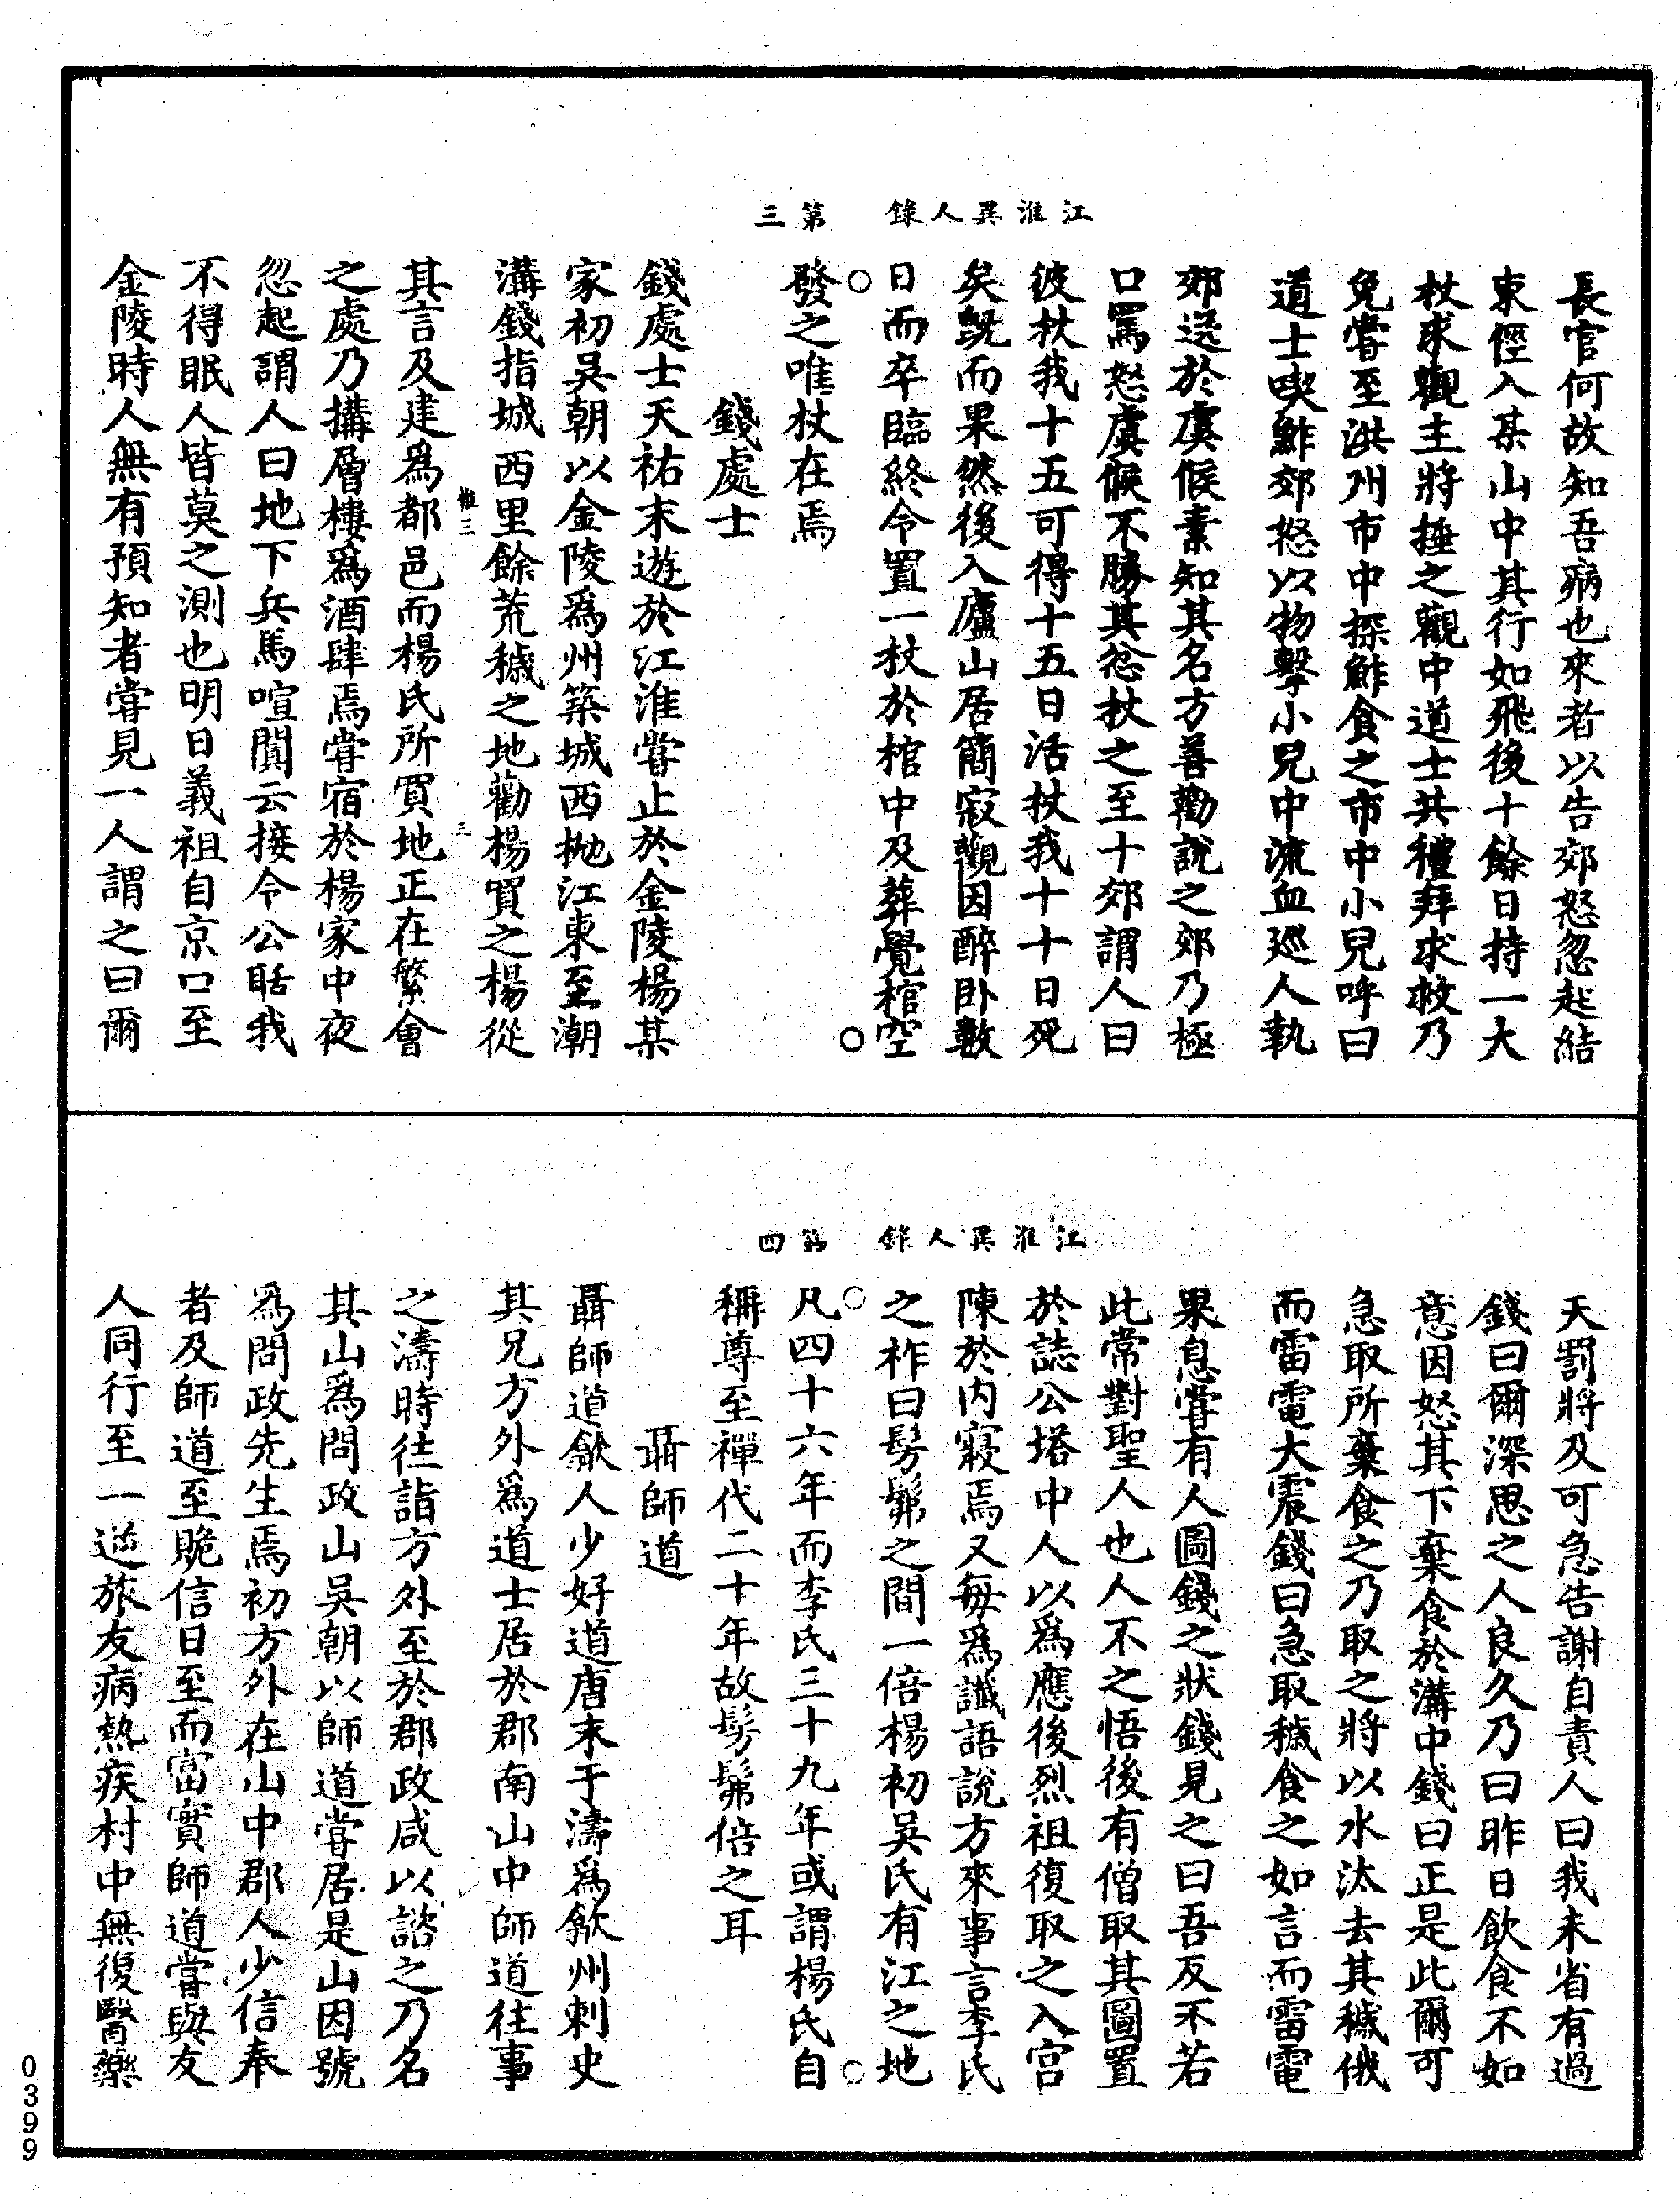 江淮異人錄　第三
長官何故知吾病也來者以告郊怒忽起結
束徑入某山中其行如飛後十餘日持一大
杖求觀主將捶之觀中道士共禮拜求救乃
免嘗至洪州市中探鮓食之市中小兒呼曰
道士喫鮓郊怒以物擊小兒中流血巡人執
郊送於虞候素知其名方善勸說之郊乃極
口罵怒虞候不勝其忿杖之至十郊謂人曰
彼杖我十五可得十五日活杖我十十日死
矣旣而果然後入廬山居簡寂觀因醉臥數
日而卒臨終令置一杖於棺中及葬覺棺空
發之唯杖在焉
錢處士
錢處士天祐末遊於江淮嘗止於金陵楊某
家初吳朝以金陵爲州築城西拋江東至潮
溝錢指城西里餘荒穢之地勸楊買之楊從
惟三
三
其言及建爲都邑而楊氏所買地正在繁會
之處乃搆層樓爲酒肆焉嘗宿於楊家中夜
忽起謂人曰地下兵馬喧闐云接令公聒我
不得眠人皆莫之測也明日義祖自京口至
金陵時人無有預知者嘗見一人謂之曰爾
江淮異人錄　第四
天罰將及可急告謝自責人曰我未省有過
錢曰爾深思之人良久乃曰昨日飲食不如
意因怒其下棄食於溝中錢曰正是此爾可
急取所棄食之乃取之將以水汰去其穢俄
而雷電大震錢曰急取穢食之如言而雷電
果息嘗有人圖錢之狀錢見之曰吾反不若
此常對聖人也人不之悟後有僧取其圖置
於誌公塔中人以爲應後烈祖復取之入宮
陳於內寢焉又每爲讖語說方來事言李氏
之祚曰髣髴之間一倍楊初吳氏有江之地
凡四十六年而李氏三十九年或謂楊氏自
稱尊至禪代二十年故髣髴倍之耳
聶師道
聶師道歙人少好道唐末于濤爲歙州刺史
其兄方外爲道士居於郡南山中師道往事
之濤時往詣方外至於郡政咸以諮之乃名
其山爲問政山吳朝以師道嘗居是山因號
爲問政先生焉初方外在山中郡人少信奉
者及師道至貺信日至而富實師道嘗與友
人同行至一逆旅友病熱疾村中無復醫藥
0399